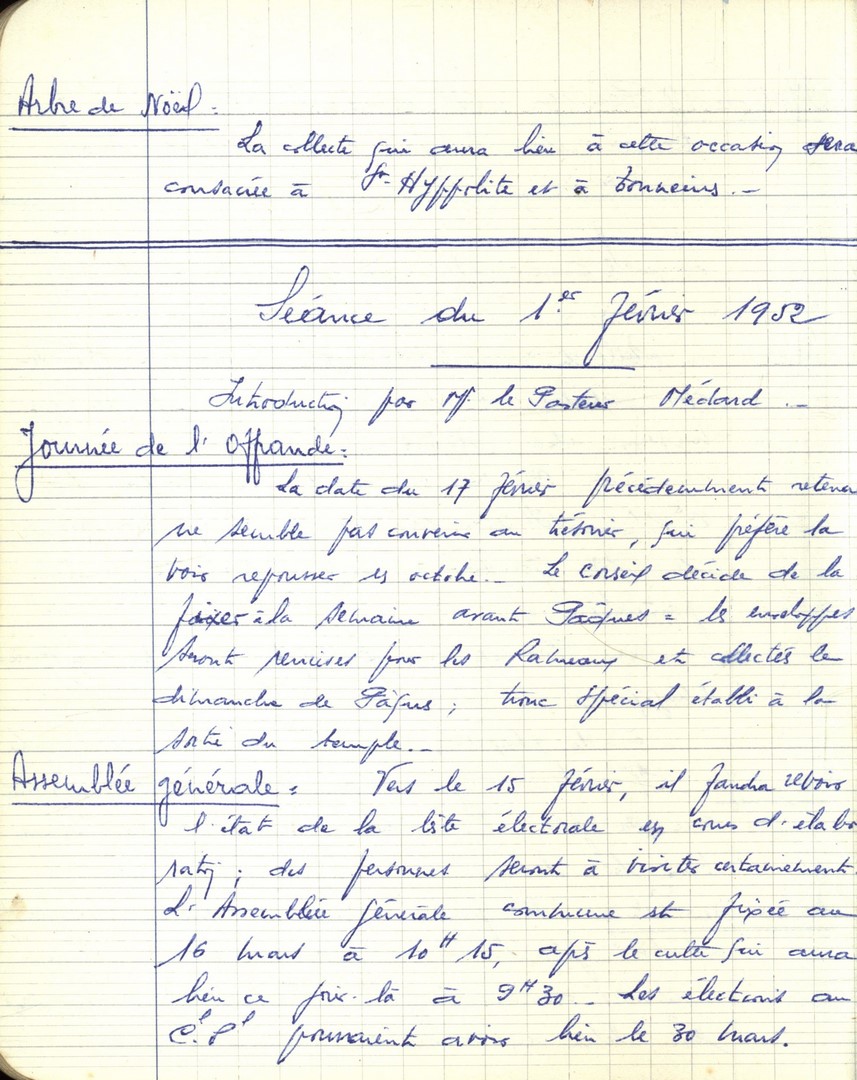 Arbre de Noël :
La collecte qui aura lieu à cette occasion sera
consacrée à St Hyppolite et à Tonneins. -
Séance du 1er Février 1952
Introduction par Mr le Pasteur Médard. -
Journée de l'Offrande :
La date du 17 février précédemment retenue
ne semble pas convenir au trésorier, qui préfère la
voir repousser en octobre. - Le conseil décide de la
fixer à la semaine avant Pâques = les enveloppes
seront remises pour les Rameaux et collectés le
dimanche de Pâques ; tronc spécial établi à la
sortie du temple. -
Assemblée générale : Vers le 15 février, il faudra revoir
l'état de la liste électorale en cours d'élabo
ration ; des personnes seront à visiter certainement.
L'Assemblée Générale commune est fixée au
16 mars à 10H 15, après le culte qui aura
lieu ce jour-là à 9H30. - Les élections au
Cl Pl pourraient avoir lieu le 30 mars.